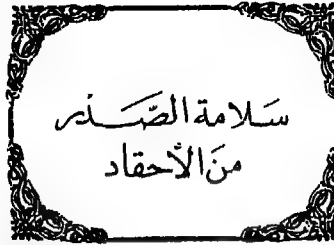 سَلامة الصَّدر
منَ الأحقاد